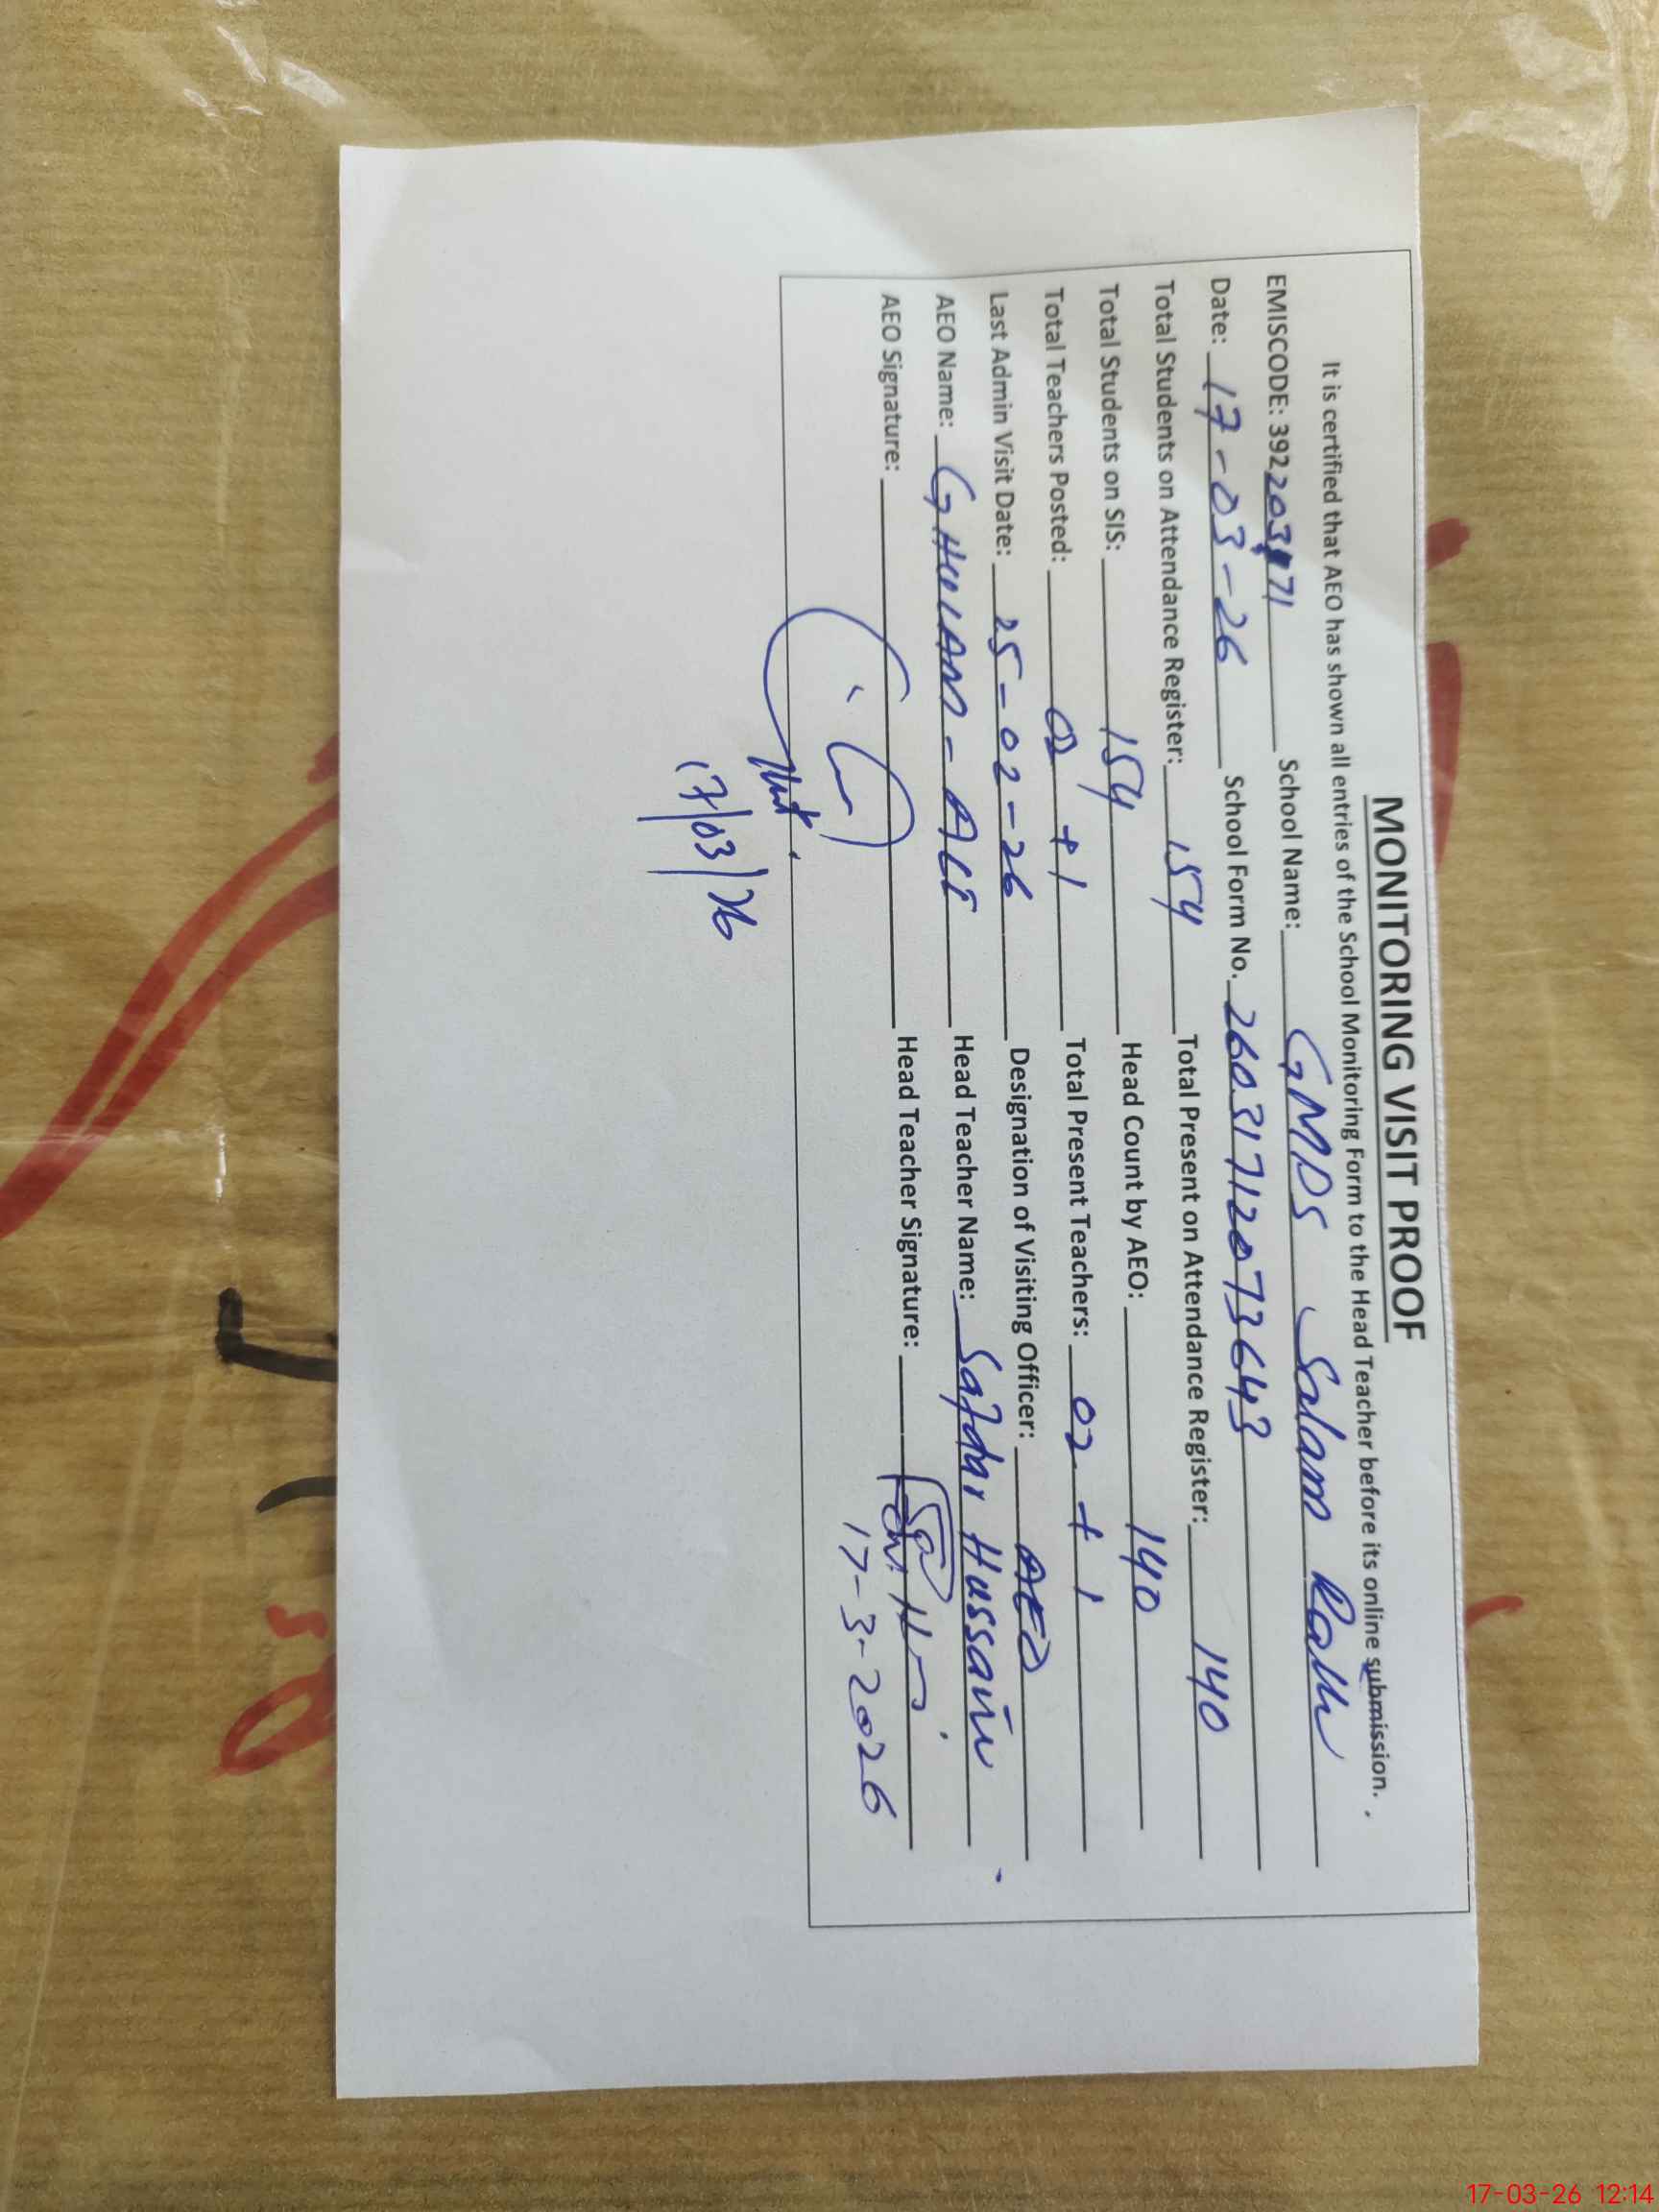 MONITORING VISIT PROOF
It is certified that AEO has shown all entries of the School Monitoring Form to the Head Teacher before its online submission.
EMISCODE: 39220371 School Name: GMPS Salam
Date: 17-03-26 School Form No. 26031712073643
Total Students on Attendance Register: 154 Total Present on Attendance Register: 140
Total Students on SIS: 154 Head Count by AEO: 140
Total Teachers Posted: 02 + 1 Total Present Teachers: 02 + 1
Last Admin Visit Date: 25-02-26 Designation of Visiting Officer: AEO
AEO Name: GHULAM - ALI Head Teacher Name: Safdar Hussain
AEO Signature: Head Teacher Signature:
17-3-2026
17/03/26
17-03-26 12:14